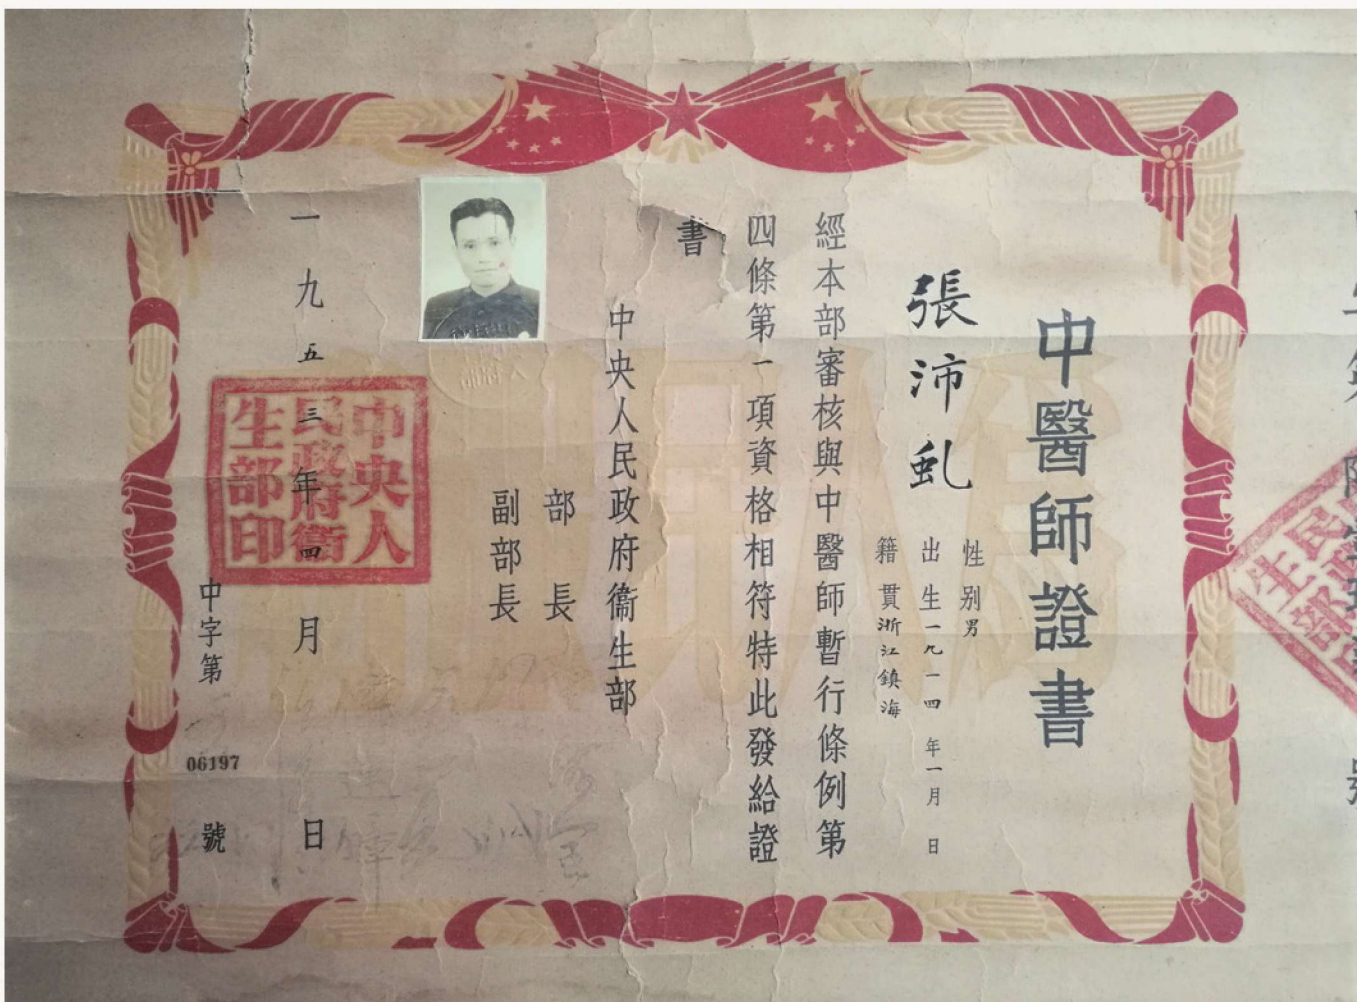 中醫師證書
張沛虬
性別男
出生一九一四年一月 日
籍貫浙江鎮海
經本部審核與中醫師暫行條例第
四條第一項資格相符特此發給證
書
中央人民政府衞生部
部長
副部長
一九五三年四月 日
中央人
民政府衞
生部印
中字第06197號